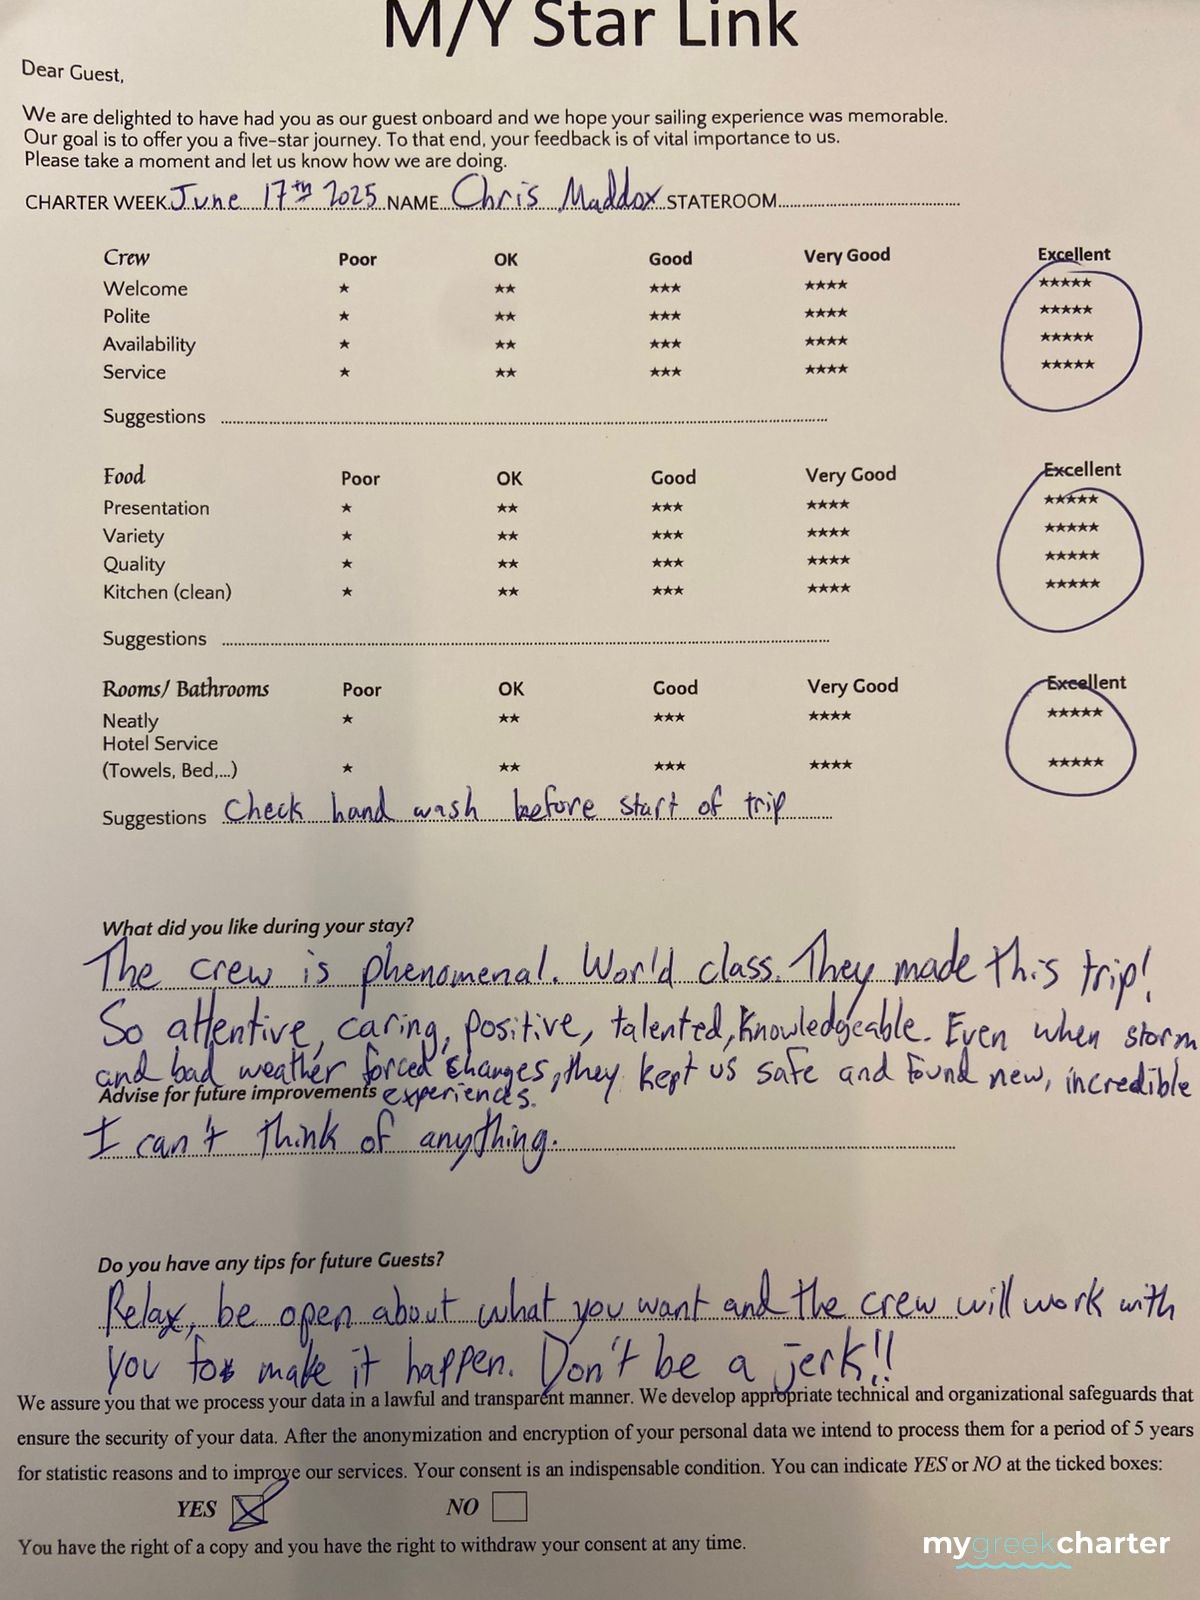 M/Y Star Link
Dear Guest,
We are delighted to have had you as our guest onboard and we hope your sailing experience was memorable.
Our goal is to offer you a five-star journey. To that end, your feedback is of vital importance to us.
Please take a moment and let us know how we are doing.
CHARTER WEEK June 17th 2025 NAME Chris Maddox STATEROOM
Crew Poor OK Good Very Good Excellent
Welcome ★ ★★ ★★★ ★★★★ ★★★★★
Polite ★ ★★ ★★★ ★★★★ ★★★★★
Availability ★ ★★ ★★★ ★★★★ ★★★★★
Service ★ ★★ ★★★ ★★★★ ★★★★★
Suggestions
Food Poor OK Good Very Good Excellent
Presentation ★ ★★ ★★★ ★★★★ ★★★★★
Variety ★ ★★ ★★★ ★★★★ ★★★★★
Quality ★ ★★ ★★★ ★★★★ ★★★★★
Kitchen (clean) ★ ★★ ★★★ ★★★★ ★★★★★
Suggestions
Rooms/ Bathrooms Poor OK Good Very Good Excellent
Neatly ★ ★★ ★★★ ★★★★ ★★★★★
Hotel Service
(Towels, Bed,...) ★ ★★ ★★★ ★★★★ ★★★★★
Suggestions Check hand wash before start of trip
What did you like during your stay?
The crew is phenomenal. World class. They made this trip!
So attentive, caring, positive, talented, knowledgeable. Even when storm
and bad weather forced changes, they kept us safe and found new, incredible
Advise for future improvements experiences.
I can't think of anything.
Do you have any tips for future Guests?
Relax, be open about what you want and the crew will work with
you to make it happen. Don't be a jerk!!
We assure you that we process your data in a lawful and transparent manner. We develop appropriate technical and organizational safeguards that
ensure the security of your data. After the anonymization and encryption of your personal data we intend to process them for a period of 5 years
for statistic reasons and to improve our services. Your consent is an indispensable condition. You can indicate YES or NO at the ticked boxes:
YES NO
You have the right of a copy and you have the right to withdraw your consent at any time.
mygreekcharter